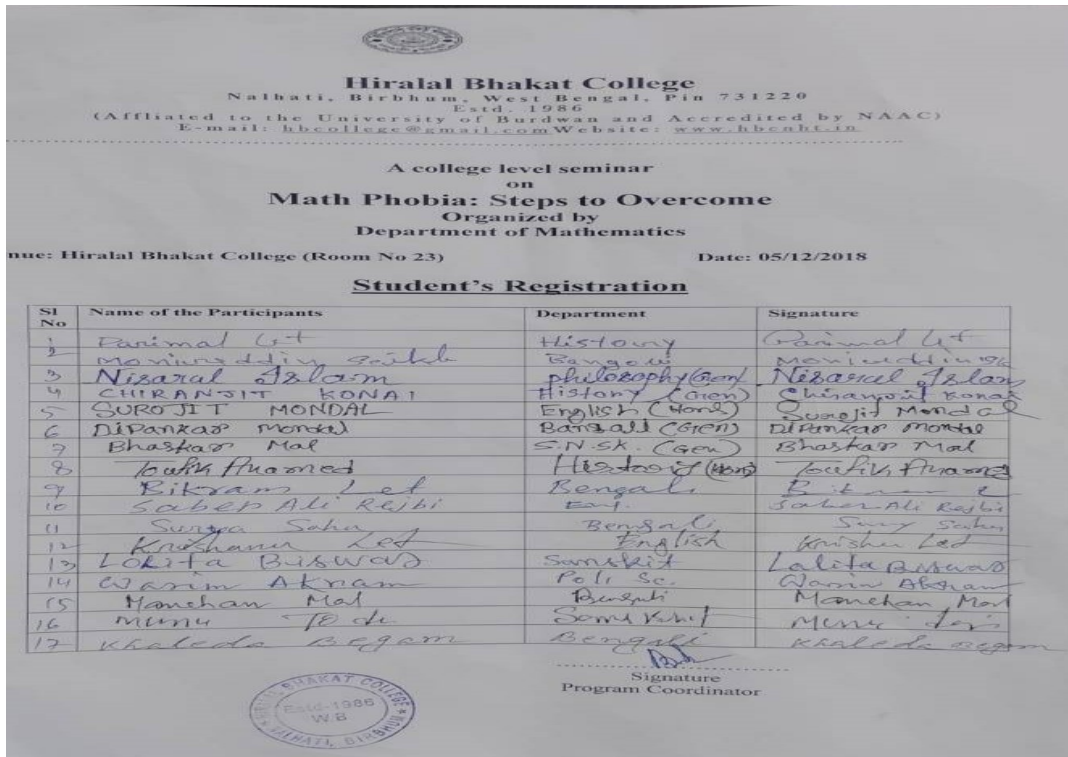 Hiralal Bhakat College
Nalhati, Birbhum, West Bengal, Pin 731220
Estd. 1986
(Affiliated to the University of Burdwan and Accredited by NAAC)
E-mail: hbcollege@gmail.comWebsite: www.hbcnht.in
A college level seminar
on
Math Phobia: Steps to Overcome
Organized by
Department of Mathematics
nue: Hiralal Bhakat College (Room No 23) Date: 05/12/2018
Student's Registration
Sl No Name of the Participants Department Signature
1 Parimal Let History Parimal Let
2 Moniruddin
3 philosophy (Gen)
4 CHIRANJIT KONAI History (Gen) Chiranjit Konai
5 SUROJIT MONDAL English (Hons) Surojit Mondal
6 DiPankar Mondal Bangali (Gen) DiPankar Mondal
7 Bhaskar Mal S.N.SK. (Gen) Bhaskar Mal
8 Toufik Ahamed (Hons) Toufik Ahamed
9 Bikram Let Bengali
10 Saber Ali Rejbi Saber Ali Rejbi
11 Surya Saha Bengali Saha
12 Krishanu Let English Let
13 LOKITA BISWAS Sanskrit Lalita BISWAS
14 Wasim Akram Poli Sc. Wasim Akram
15 Manchan Mal Manchan Mal
16 Munu
17 Khaleda Begam Bengali Khaleda Begam
Signature
Program Coordinator
HIRALAL BHAKAT COLLEGE
Estd-1986
W.B
NALHATI, BIRBHUM